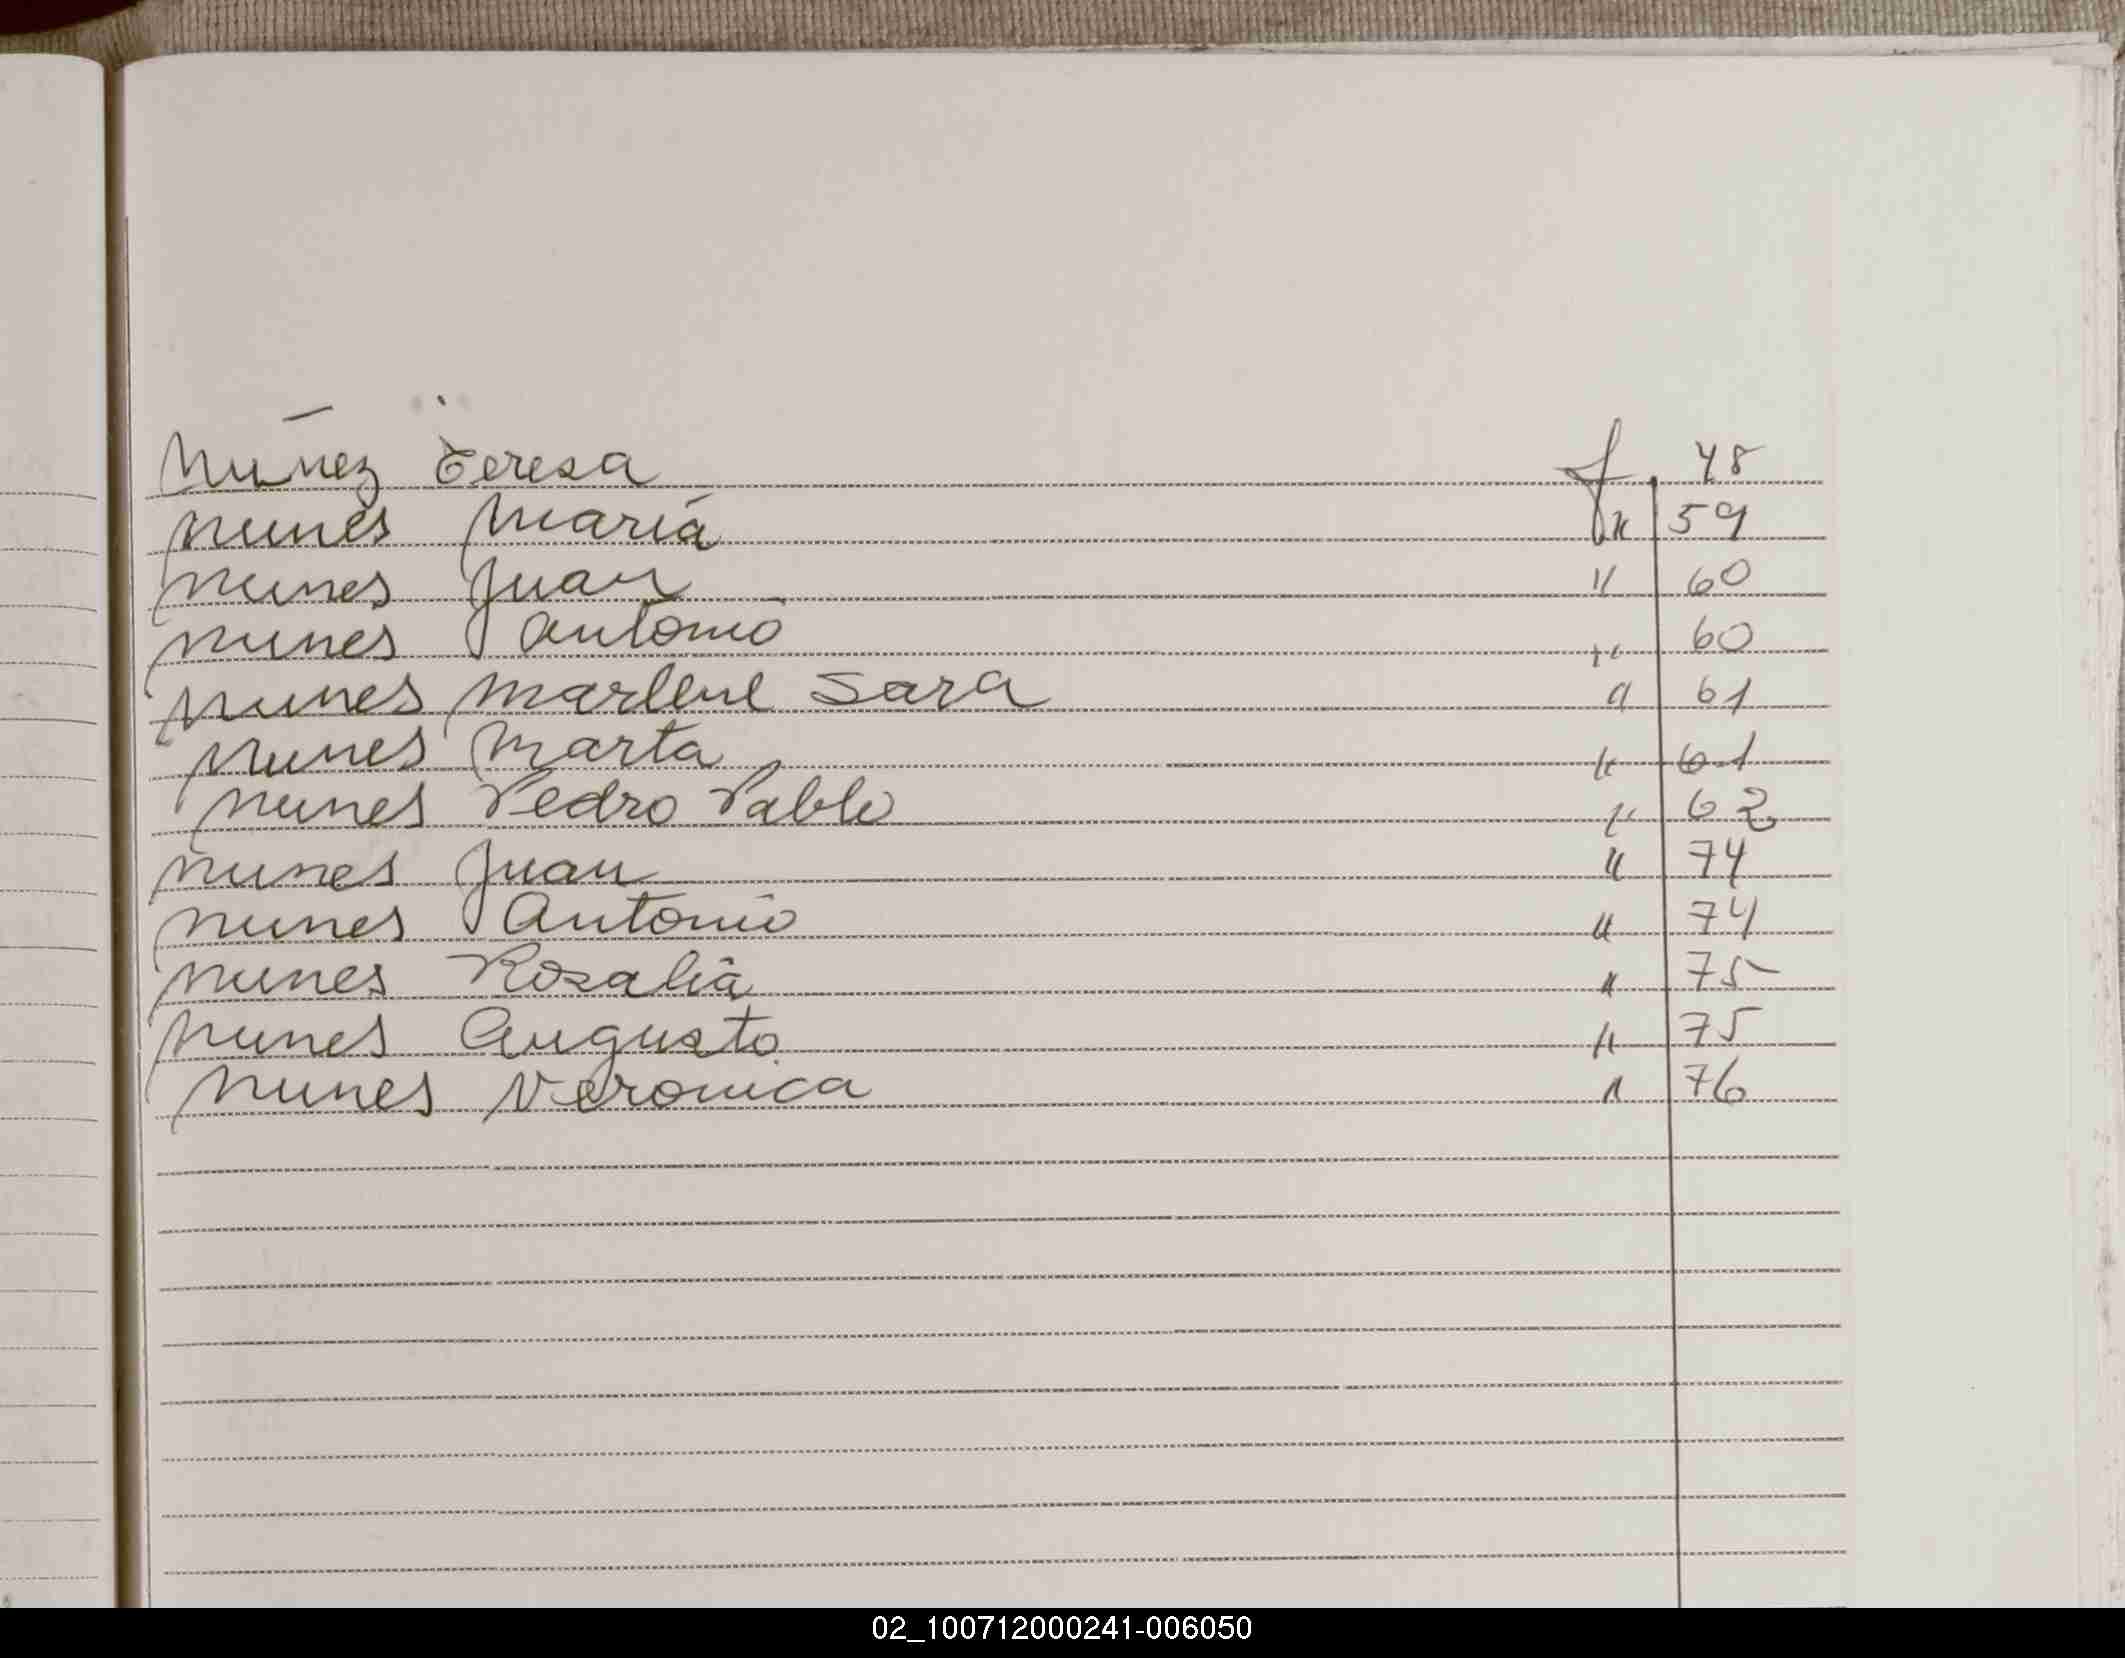 Nuñez Teresa f. 48
Nunes María " 59
Nunes Juan " 60
Nunes Antonio " 60
Nunes Marlene Sara " 61
Nunes Marta " 61
Nunes Pedro Pablo " 62
Nunes Juan " 74
Nunes Antonio " 74
Nunes Rosalia " 75
Nunes Augusto " 75
Nunes Veronica " 76
02_100712000241-006050